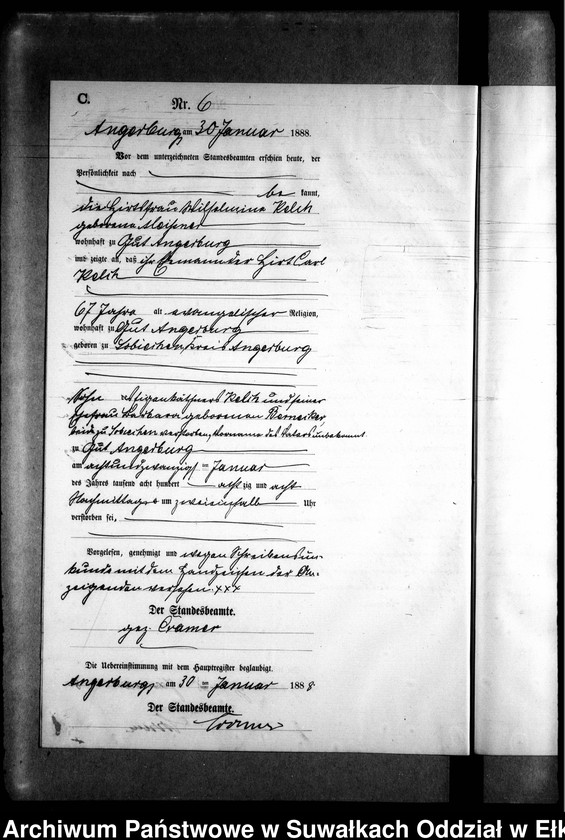 C.
Nr. 6
Angerburg am 30 Januar 1888.
Vor dem unterzeichneten Standesbeamten erschien heute, der
Persönlichkeit nach
be kannt,
die Hirtsfrau Wilhelmine Kelch
geborene
wohnhaft zu Gut Angerburg
und zeigte an, daß ihr Ehemann der Hirt Carl
Kelch
67 Jahre alt evangelischer Religion,
wohnhaft zu Gut Angerburg
geboren zu Sobiechen Kreis Angerburg
Sohn des Eigenkäthners Kelch und seiner
Ehefrau Barbara geborenen
beide zu Sobiechen verstorben, Vorname des Vaters unbekannt
zu Gut Angerburg
am achtundzwanzigsten Januar
des Jahres tausend acht hundert achtzig und acht
Nachmittags um zweieinhalb Uhr
verstorben sei,
Vorgelesen, genehmigt und wegen Schreibensun-
kunde mit dem Handzeichen der An-
zeigenden versehen. xxx
Der Standesbeamte.
gez. Cramer
Die Uebereinstimmung mit dem Hauptregister beglaubigt.
Angerburg, am 30 Januar 1888
Der Standesbeamte.
Cramer
Archiwum Państwowe w Suwałkach Oddział w Ełk